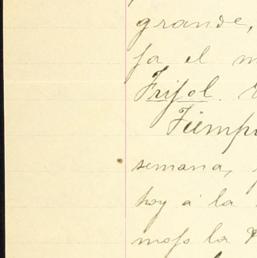 grande,
fa el m
Frifol.
Tiemp
semana,
hoy á la
mofo la